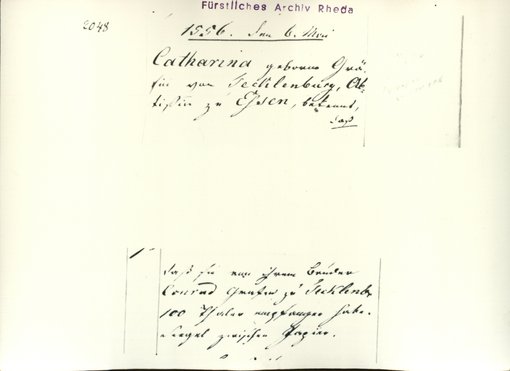 Fürstliches Archiv Rheda
2048
1556. den 6. Mai
Catharina geborne Grä-
fin von Tecklenburg, Äb-
tißin zu Eßen, bekennt,
daß
daß sie von ihrem Bruder
Conrad Grafen zu Tecklenb.
100 Thaler empfangen habe.
Siegel zwischen Papier.